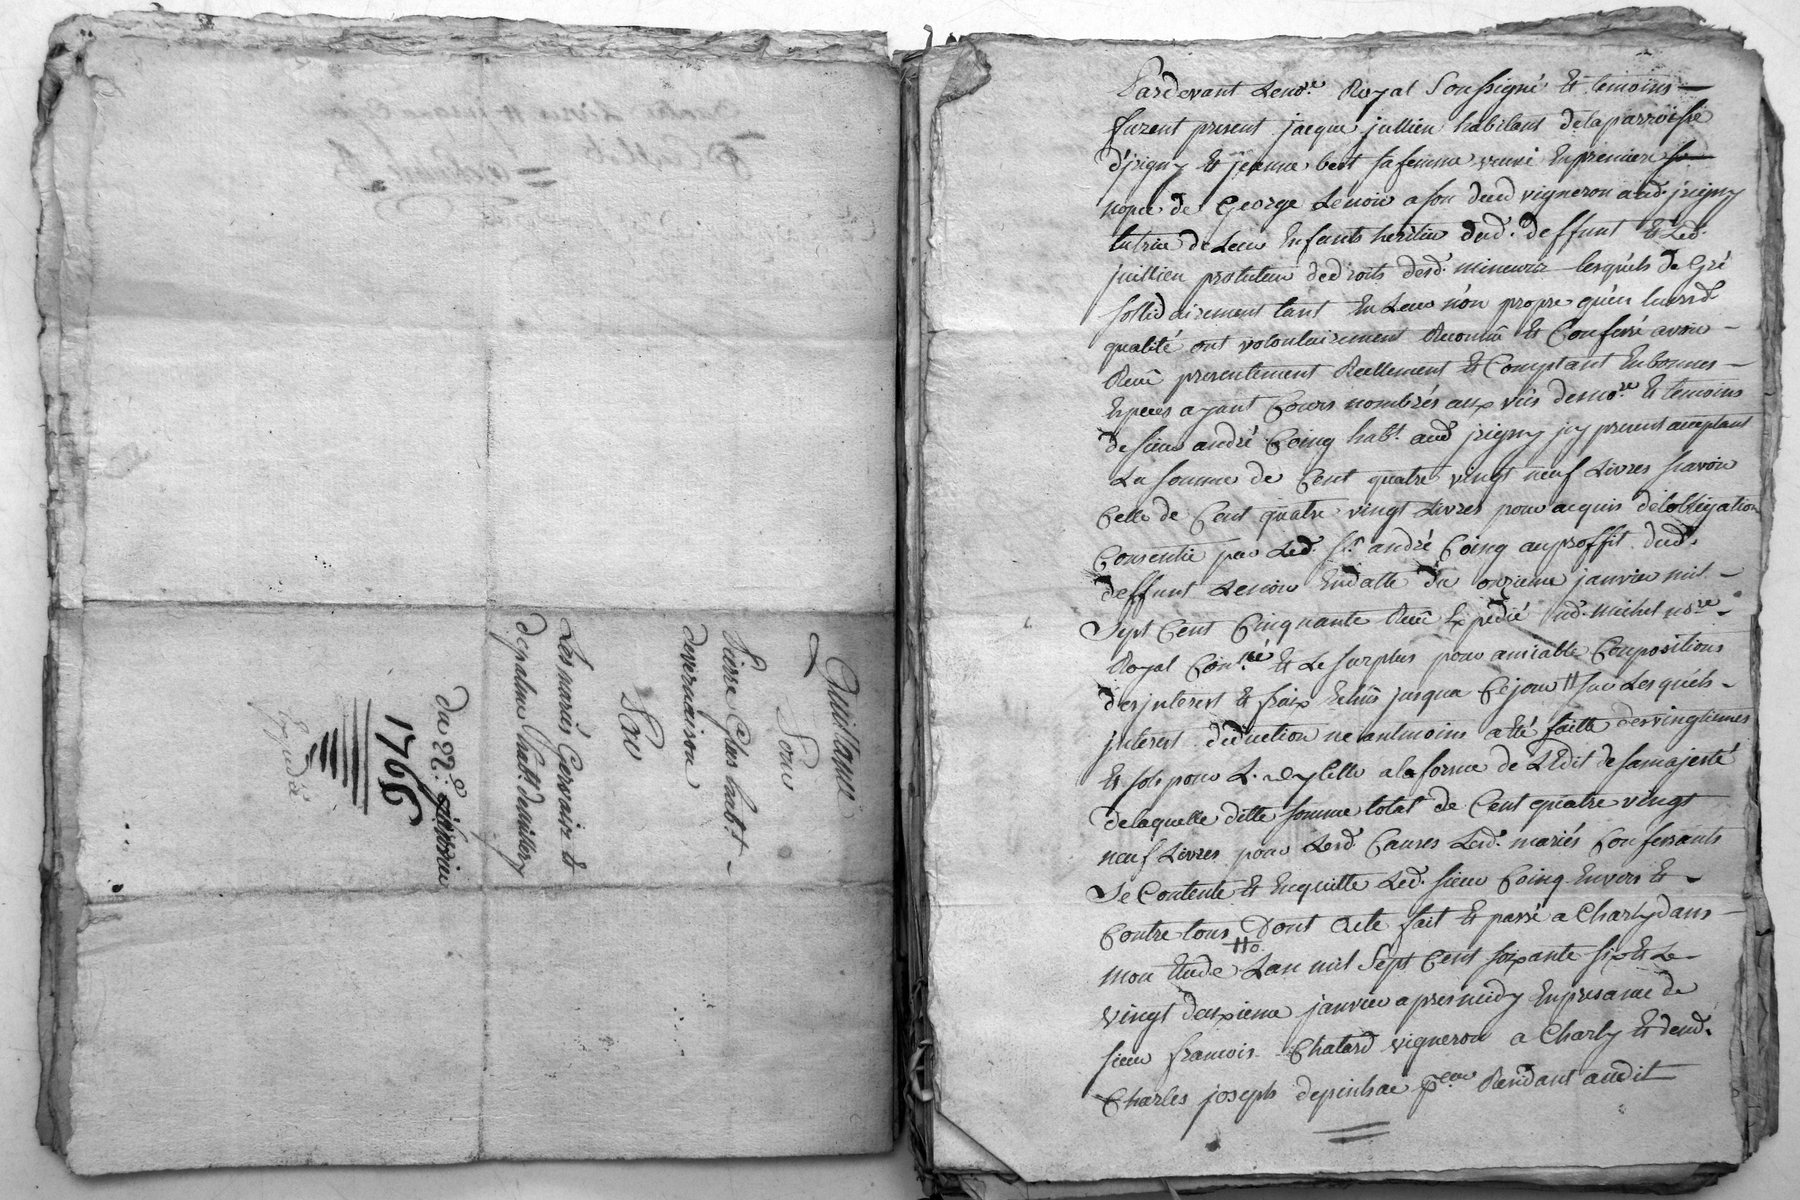 Quittance
Pour
Pierre Glas habt.
de vernaison
Par
Les mariés Gervaise &
depalme habt. de millery
du 22e. janvier
1766
Expediée
Pardevant Le nore. Royal Soussigné Et temoins
furent present jacque jullien habitant de la parroisse
d'jrigny Et jeanne beet sa femme veuve En premiere
nopce de George Lenoir a son deced vigneron aud. jrigny
tutrice de Leurs Enfants heritiers dud. deffunt Et Led.
juillien protuteur de droits desd. mineurs lesquels de Gré
sollidairement tant En Leur nôn propre qu'en leursd.
qualité ont volontairement Reconnu Et Confessé avoir
Receu presentement Reellement Et Comptant En bonnes
Especes ayant Cours nombrés aux vüs desnore. Et temoins
de sieur andré Coing habt. aud jrigny jcy present acceptant
La somme de Cent quatre vingt neuf Livres scavoir
Celle de Cent quatre vingt Livres pour acquis de lobligation
Consentie par Led. Sr. andré Coing au proffit dud.
deffunt Lenoir En datte du onzieme janvier mil
Sept Cent Cinquante Receu Expedié Md. michel nore.
Royal Et Le surplus pour amiable Composition
des jnterest Et fraix Echus jusqua Ce jour # sur Lesquels
jnterest deduction neantmoins a été faitte des vingtiemes
Et sols pour L. dycelle a la forme de L'Edit de sa majesté
de laquelle ditte somme total de Cent quatre vingt
neuf Livres pour Lesd. Causes Lesd. mariés Confessants
Se Contente Et En quitte Led. sieur Coing Envers Et
Contre tous Dont Acte fait Et passé a Charly dans
mon Etude Lan mil Sept Cent soixante six Et Le
vingt deuxieme janvier apres midy En presance de
sieur francois Chatard vigneron a Charly Et de sud.
Charles joseph depinhac Residant audit